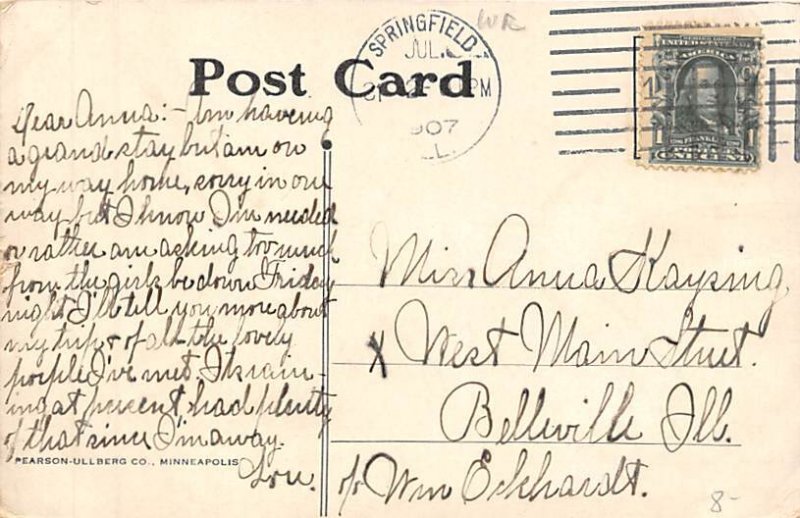 WR
SPRINGFIELD
JUL
PM
1907
ILL.
UNITED STATES OF
AMERICA
FRANKLIN
ONE CENT
Post Card
Dear Anna:- Am having
a grand stay but am on
my way home, sorry in one
way but I know I'm needed
or rather am asking too much
from the girls be down Friday
night I'll tell you more about
my trip & of all the lovely
people I've met. Its rain-
ing at present, had plenty
of that since I'm away.
Lou.
PEARSON-ULLBERG CO., MINNEAPOLIS
Miss Anna Kaysing
x West Main Street.
Belleville Ill.
c/o Wm Eckhardt.
8-